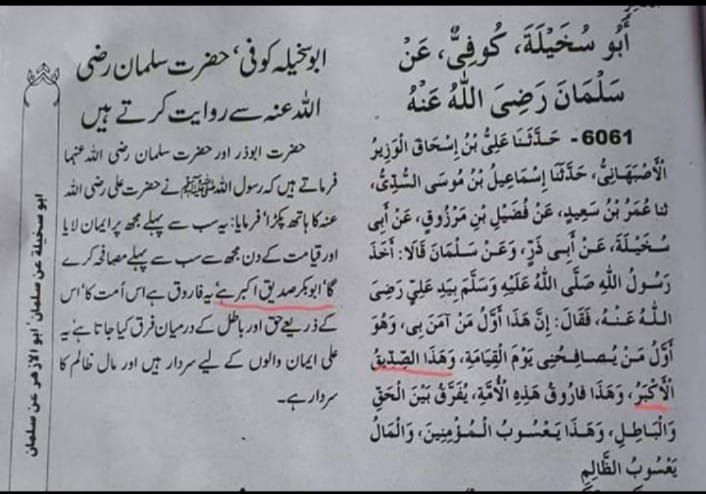 أَبُو سُخَيْلَةَ، كُوفِيٌّ، عَنْ
سَلْمَانَ رَضِيَ اللَّهُ عَنْهُ
6061- حَدَّثَنَا عَلِيُّ بْنُ إِسْحَاقَ الْوَزِيرُ
الْأَصْبَهَانِيُّ، حَدَّثَنَا إِسْمَاعِيلُ بْنُ مُوسَى السُّدِّيُّ،
ثنا عُمَرُ بْنُ سَعِيدٍ، عَنْ فُضَيْلِ بْنِ مَرْزُوقٍ، عَنْ أَبِي
سُخَيْلَةَ، عَنْ أَبِي ذَرٍّ، وَعَنْ سَلْمَانَ قَالَا: أَخَذَ
رَسُولُ اللَّهِ صَلَّى اللَّهُ عَلَيْهِ وَسَلَّمَ بِيَدِ عَلِيٍّ رَضِيَ
اللَّهُ عَنْهُ، فَقَالَ: إِنَّ هَذَا أَوَّلُ مَنْ آمَنَ بِي، وَهُوَ
أَوَّلُ مَنْ يُصَافِحُنِي يَوْمَ الْقِيَامَةِ، وَهَذَا الصِّدِّيقُ
الْأَكْبَرُ، وَهَذَا فَارُوقُ هَذِهِ الْأُمَّةِ، يُفَرِّقُ بَيْنَ الْحَقِّ
وَالْبَاطِلِ، وَهَذَا يَعْسُوبُ الْمُؤْمِنِينَ، وَالْمَالُ
يَعْسُوبُ الظَّالِمِ
ابوسخیلہ کوفی، حضرت سلمان رضی
اللہ عنہ سے روایت کرتے ہیں
حضرت ابوذر اور حضرت سلمان رضی اللہ عنہما
فرماتے ہیں کہ رسول اللہ ﷺ نے حضرت علی رضی اللہ
عنہ کا ہاتھ پکڑا، فرمایا: یہ سب سے پہلے مجھ پر ایمان لایا
اور قیامت کے دن مجھ سے سب سے پہلے مصافحہ کرے
گا، ابوبکر صدیق اکبر ہے، یہ فاروق ہے اس اُمت کا، اس
کے ذریعے حق اور باطل کے درمیان فرق کیا جاتا ہے، یہ
علی ایمان والوں کے لیے سردار ہیں اور مال ظالم کا
سردار ہے۔
ابو سخيلة عن سلمان، ابو الازهر عن سلمان